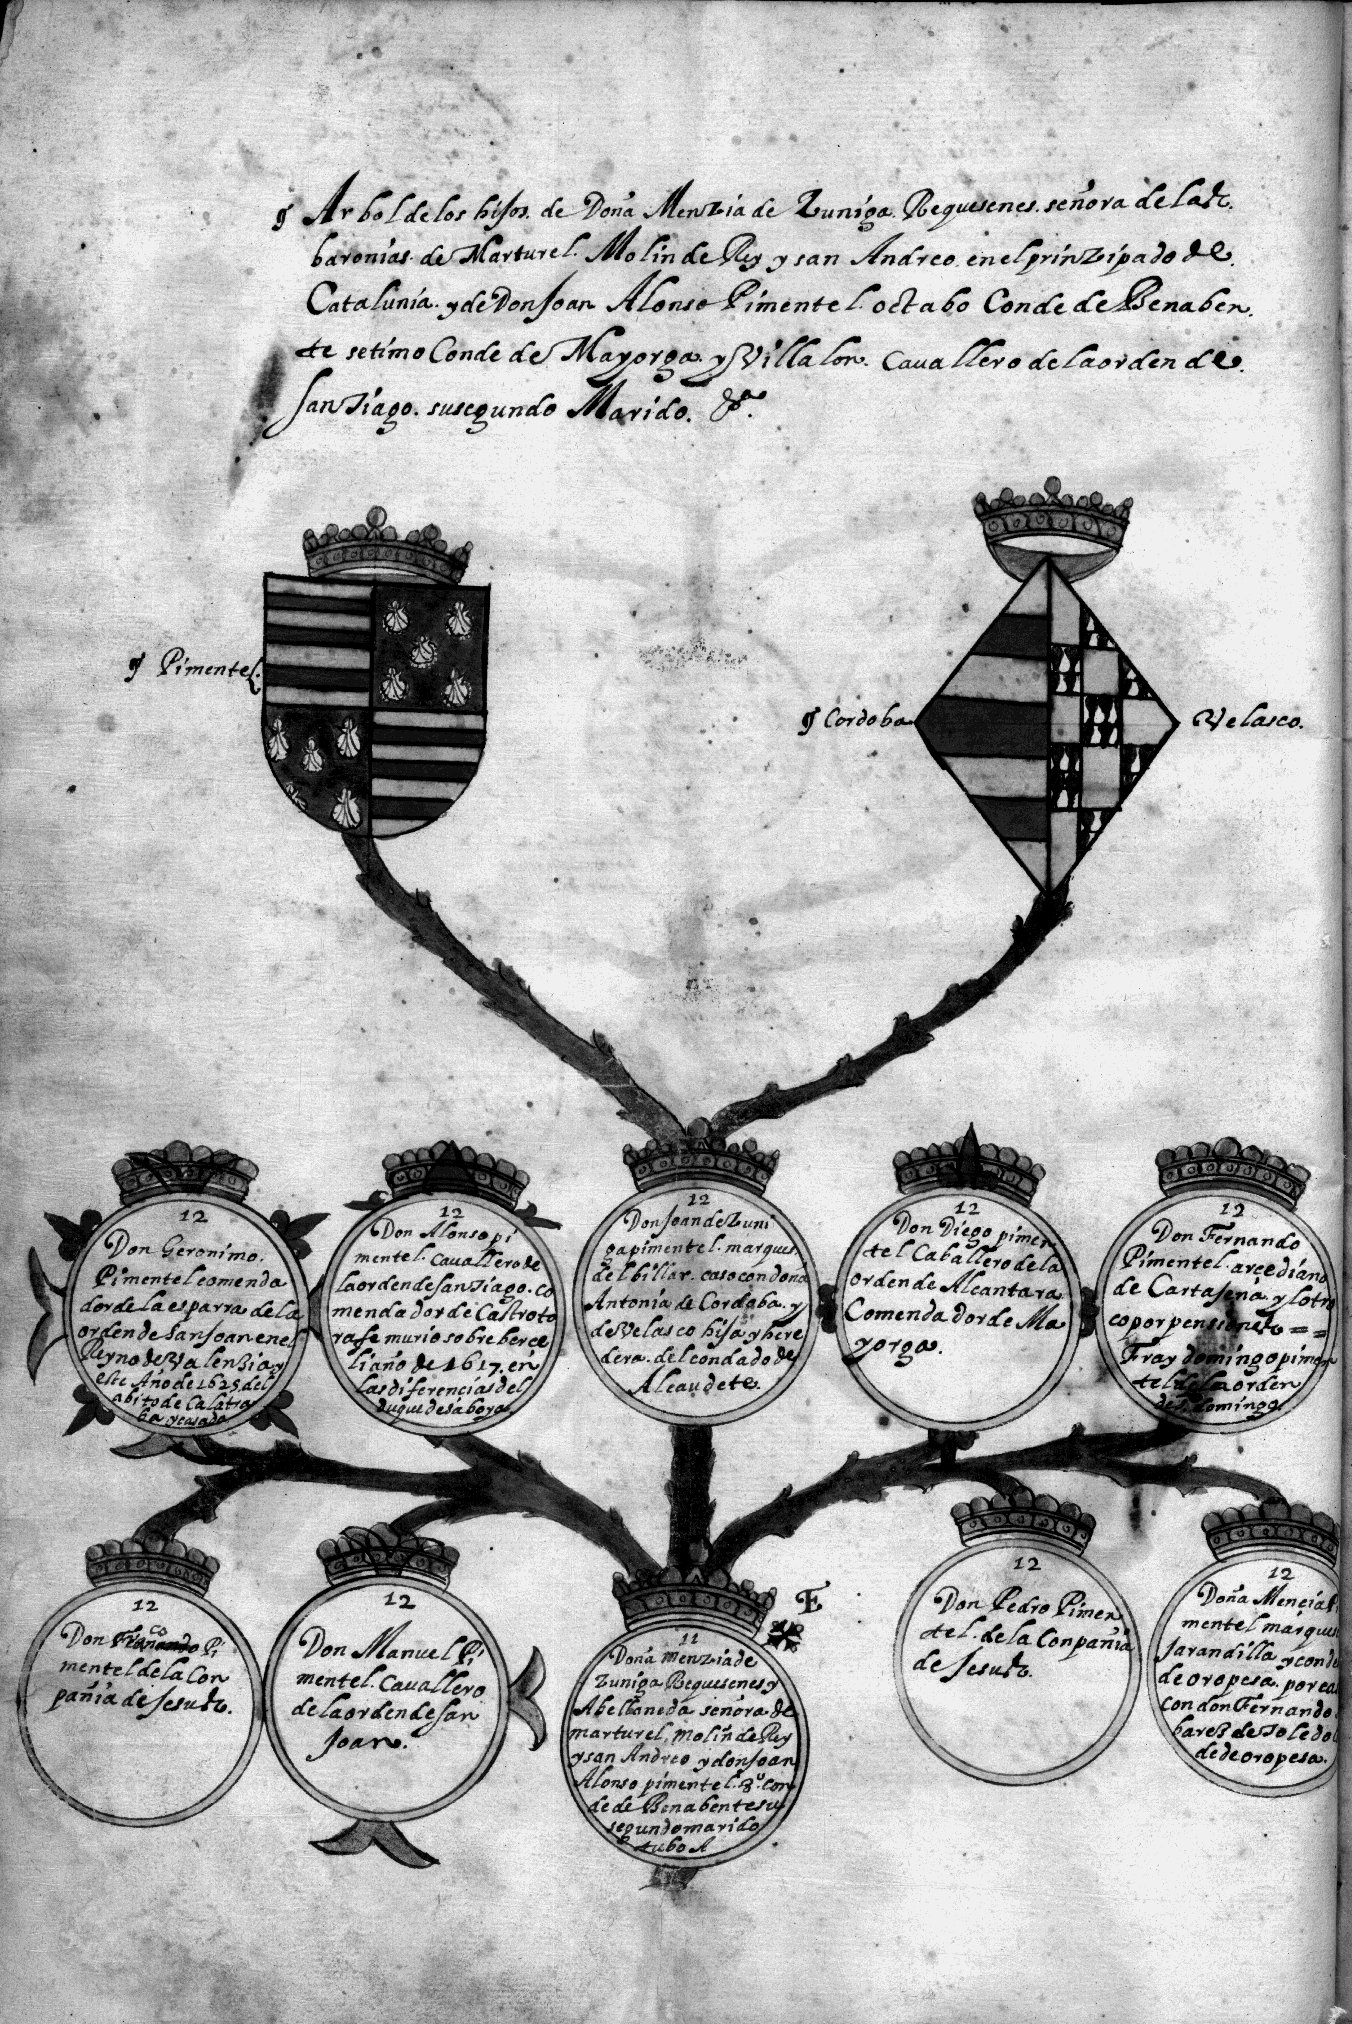 Arbol de los hijos. de Doña Menzia de Zuniga. Requesenes. señora de las
baronias. de Marturel. Molin de Rey y san Andreo. en el prinzipado de.
Catalunia. y de Don Joan Alonso Pimentel. octabo Conde de Benaben.
te setimo Conde de Mayorga. y Villalon. Cavallero de la orden de.
san Tiago. su segundo Marido. &a.
Pimentel.
Cordoba
Velasco.
12
Don Geronimo.
Pimentel comenda
dor de la esparra de la
orden de San Joan en el
Reyno de Valenzia y
este Año de 1625 del
abito de Calatra
ba y casado
12
Don Alonso pi
mentel. Cavallero de
la orden de san Tiago. co
mendador de Castroto
rafe murio sobre berce
li año de 1617. en
las diferencias del
duque de saboya.
12
Don Joan de Zuni
ga pimentel. marques.
del billar. caso con doña
Antonia de Cordoba. y
de Velasco hija y here
dera. del condado de
Alcaudete.
12
Don Diego pimen
tel Caballero de la
orden de Alcantara
Comendador de Ma
yorga.
12
Don Fernando
Pimentel. arcediano
de Cartajena. y lotro
co por pensson
Fray domingo pimen
tel de la orden
de s. domingo
12
Don Pi
mentel de la Con
pañia de Jesus.
12
Don Manuel Pi
mentel. Cavallero
de la orden de san
Joan.
E
11
Doña Menzia de
Zuniga Requesenes y
Abellaneda señora de
marturel. Molin de Rey
y san Andreo y don Joan
Alonso pimentel. 8º. con
de de Benabente su
segundo marido
tubo A
12
Don Pedro Pimen
tel. de la Conpañia
de Jesus.
12
Doña Mencia
mentel marques
Jarandilla y conde
de oropesa. por
con don Fernando.
barez de Toledo
de de oropesa.